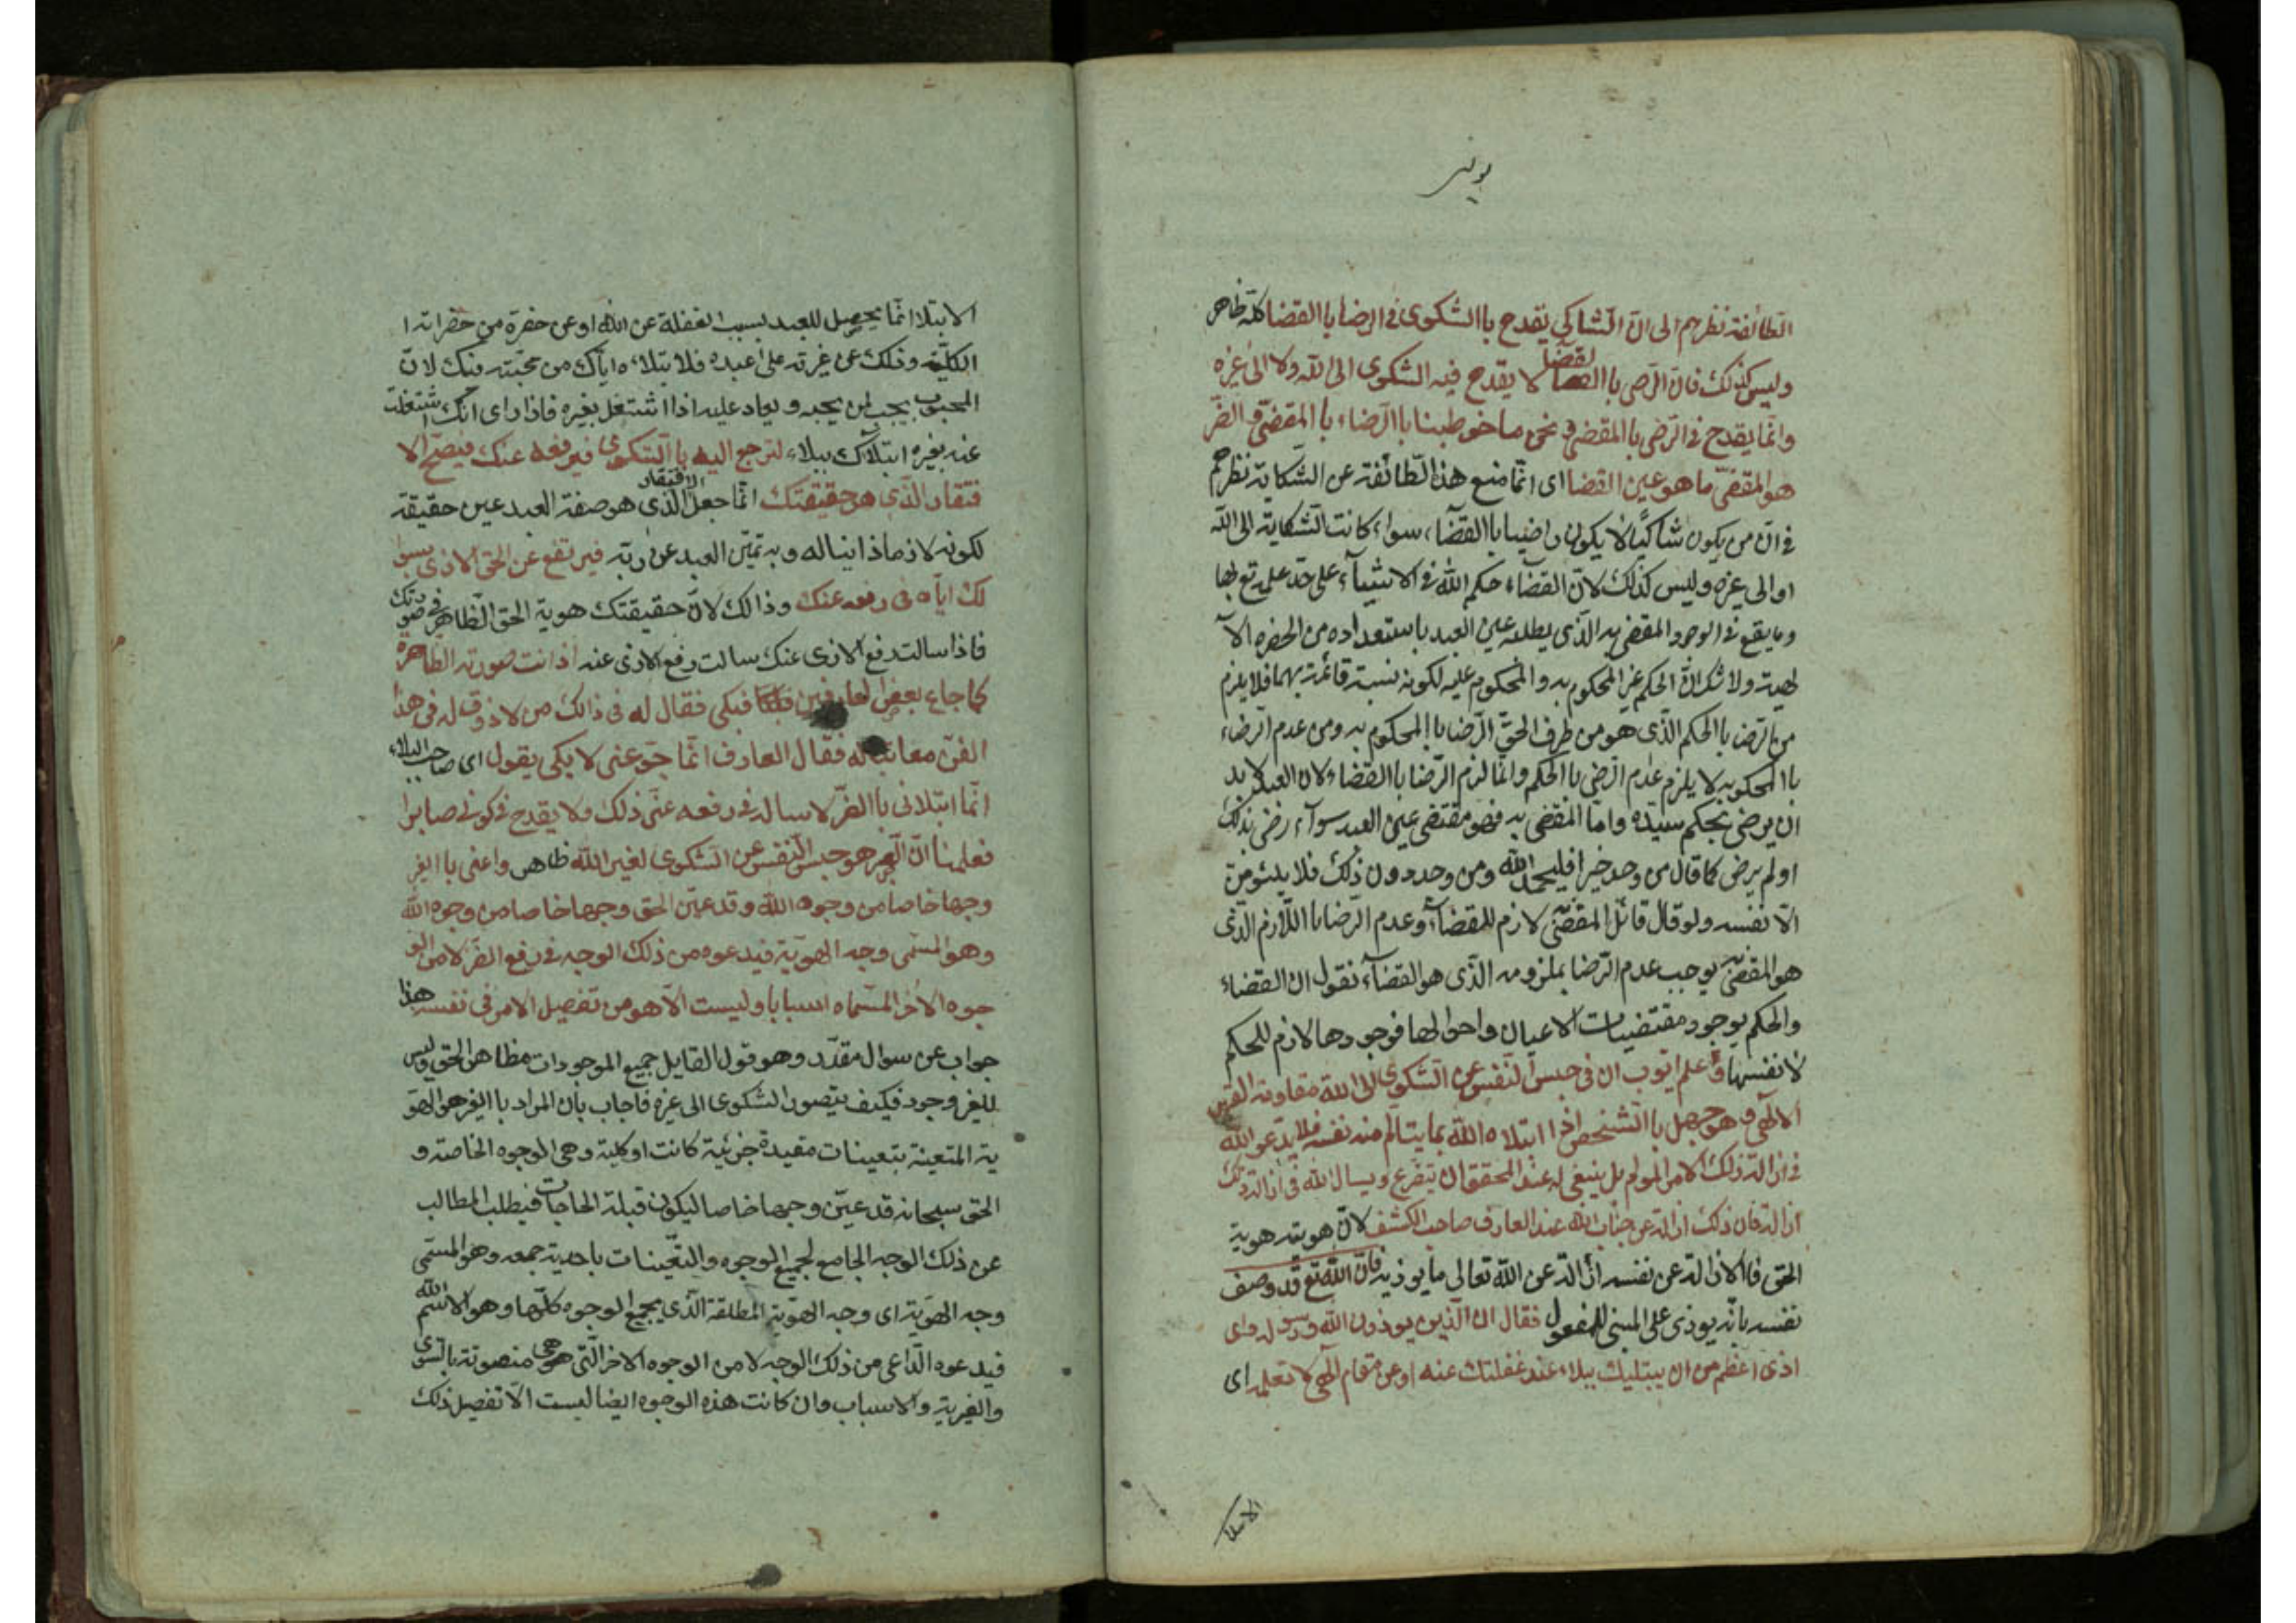 الطائفة نظرهم الى انّ الشاكي يقدح باالشكوى فى الرضا باالقضا كلّه ظاهر
وليس كذلك فان الرضى باالقضا لا يقدح فيه الشكوى الى الله ولا الى غيره
وانّما يقدح فى الرّضى باالمقضىّ ونحن ما خوطبنا باالرّضاء باالمقضىّ والضرّ
هو المقضىّ ما هو عين القضا اى انّما منع هذا الطّائفة عن الشكاية نظرهم
فى انّ من يكون شاكيًا لا يكون راضيا باالقضآء سواء كانت الشكاية الى الله
او الى غيره وليس كذلك لانّ القضاء حكم الله فى الاشيآء على حدّ علمه تع بها
وما يقع فى الوجود المقضى به الذى يطلبه عين العبد باستعداده من الحضره الآ
لهية ولا شك انّ الحكم غير المحكوم به والمحكوم عليه لكونه نسبة قائمة بهما فلا يلزم
من الرّضا باالحكم الّذى هو من طرف الحقّ الرّضا باالمحكوم به ومن عدم الرّضاء
باالمحكوم به لا يلزم عدم الرّضى باالحكم وانّما لزم الرّضا باالقضاء لان العبد لا بد
ان يرضى بحكم سيّده وامّا المقضى به فهو مقتضى عين العبد سوآء رضى بذلك
او لم يرض كما قال من وجد خيرا فليحمد الله ومن وجد دون ذلك فلا يلومن
الّا نفسه ولو قال قائل المقضىّ لازم للقضآء وعدم الرّضا باللّازم الّذى
هو المقضىّ به يوجب عدم الرّضا بملزومه الّذى هو القضآء نقول ان القضاء
والحكم بوجود مقتضيات الاعيان واحوالها فوجودها لازم للحكم
لا نفسها وعلم ايّوب ان فى حبس النّفس عن الشكوى الى الله مقاومة القهر
الالهى وهو جهل باالشخص اذا ابتلاه الله بما يتالّم منه نفسه فلا يدعو الله
فى ازالة ذلك الامر المولم بل ينبغى له عند المحقق ان يتضرع ويسال الله فى ازالة ذلك
ازالة فان ذلك ازالة عن جناب الله عند العارف صاحب الكشف لانّ هويته هوية
الحق فاالازالة عن نفسه ازالة عن الله تعالى ما يوذيه فانّ الله تع قد وصف
نفسه بانّه يوذى على المبنى للمفعول فقال ان الّذين يوذون الله ورسوله واى
اذى اعظم من ان يبتليك ببلاء عند غفلتك عنه او عن مقام الهى لا تعلمه اى
الابتلا
الابتلا انّما يحصل للعبد بسبب الغفلة عن الله او عن حضرة من حضراته ا
الكلّية وذلك عن غيرته على عبده فلابتلاءه ايّاك من محبته منك لانّ
المحبوب يجب لمن يحبه ويعاد عليه اذا اشتغل بغيره فاذا راى انّك اشتغلت
عنه بغيره ابتلاك ببلاء لترجع اليه باالشكوى فيرفعه عنك فيصحّ الا
فتقار الّذى هو حقيقتك انّما جعل الافتقار الّذى هو صفة العبد عين حقيقته
لكونه لازما ذاتيا له وبه تميّز العبد عن ربّه فيرتفع عن الحق الاذى بسوا
لك ايّاه فى رفعه عنك وذالك لانّ حقيقتك هوية الحق الظّاهر فى صورتك
فاذا سالت رفع الاذى عنك سالت رفع الاذى عنه اذ انت صورته الظاهرة
كما جاع بعض العارفين فبكى فقال له فى ذالك من لا ذوق له فى هذا
الفنّ معاتبا له فقال العارف انّما جوعنى لابكى يقول اى صاحب البلاء
انّما ابتلانى باالضرّ لاساله فى رفعه عنّى ذلك ولا يقدح فى كونى صابرا
فعلمنا انّ الصبر هو حبس النّفس عن الشكوى لغير الله ظاهر واعنى باالغير
وجها خاصا من وجوه الله وقد عيّن الحق وجها خاصا من وجوه الله
وهو المسمّى وجه الهويّة فيدعوه من ذلك الوجه فى رفع الضرّ لا من الو
جوه الاخر المسمّاه اسبابا وليست الّا هو من تفصيل الامر فى نفسه هذا
جواب عن سوال مقدّر وهو قول القايل جميع الموجودات مظاهر الحق وليس
للغير وجود فكيف يتصور الشكوى الى غيره فاجاب بان المراد باالغير هو الهو
ية المتعينة بتعينات مقيدة جزئية كانت او كلية وهى الوجوه الخاصة و
الحق سبحانه قد عيّن وجها خاصا ليكون قبلة الحاجات فيطلب المطالب
عن ذلك الوجه الجامع لجميع الوجوه والتعيّنات باحدية جمعه وهو المسمّى
وجه الهويّة اى وجه الهويّة المطلقة الّذى يجمع الوجوه كلّها وهو الاسم الله
فيدعوه الدّاعى من ذلك الوجه لا من الوجوه الاخر الّتى هى منصوتة باالسّوى
والغيرية والاسباب وان كانت هذه الوجوه ايضا ليست الّا تفصيل ذلك